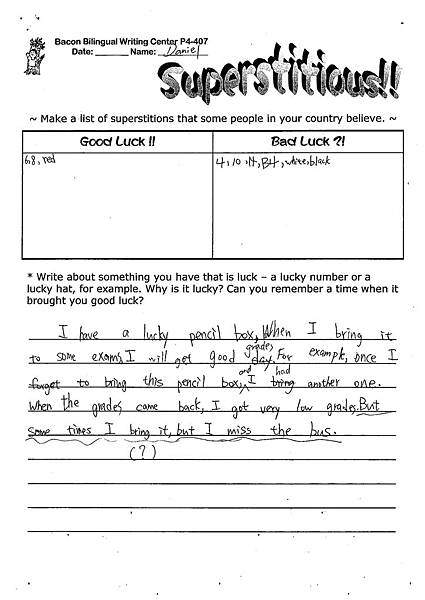 Bacon Bilingual Writing Center P4-407
Date: ______ Name: Daniel
Superstitious!!
~ Make a list of superstitions that some people in your country believe. ~
Good Luck !! Bad Luck ?!
6,8, red 4, 10, 14, B4, white, black
* Write about something you have that is luck – a lucky number or a
lucky hat, for example. Why is it lucky? Can you remember a time when it
brought you good luck?
I have a lucky pencil box, When I bring it
to some exams, I will get good grades. For example, once I
forget to bring this pencil box, and I had another one.
When the grades came back, I got very low grades. But
some times I bring it, but I miss the bus.
(?)